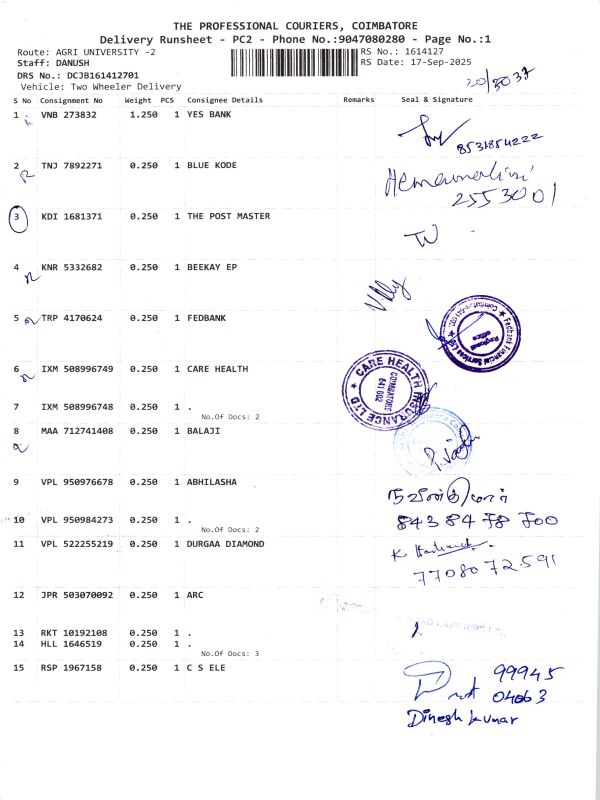 THE PROFESSIONAL COURIERS, COIMBATORE
Delivery Runsheet - PC2 - Phone No.:9047080280 - Page No.:1
Route: AGRI UNIVERSITY -2 RS No.: 1614127
Staff: DANUSH RS Date: 17-Sep-2025
DRS No.: DCJB161412701
Vehicle: Two Wheeler Delivery
20/3037
S No Consignment No Weight PCS Consignee Details Remarks Seal & Signature
1 VNB 273832 1.250 1 YES BANK
8531854222
2 TNJ 7892271 0.250 1 BLUE KODE
Hemamalini
2553001
3 KDI 1681371 0.250 1 THE POST MASTER
4 KNR 5332682 0.250 1 BEEKAY EP
5 TRP 4170624 0.250 1 FEDBANK
Fedbank Financial Services Ltd
Regional Office
6 IXM 508996749 0.250 1 CARE HEALTH
CARE HEALTH INSURANCE LTD
COIMBATORE
641 002
7 IXM 508996748 0.250 1 .
No.Of Docs: 2
8 MAA 712741408 0.250 1 BALAJI
9 VPL 950976678 0.250 1 ABHILASHA
நவீன்குமார்
84384 78 700
10 VPL 950984273 0.250 1 .
No.Of Docs: 2
11 VPL 522255219 0.250 1 DURGAA DIAMOND
7708072591
12 JPR 503070092 0.250 1 ARC
13 RKT 10192108 0.250 1 .
14 HLL 1646519 0.250 1 .
No.Of Docs: 3
15 RSP 1967158 0.250 1 C S ELE
99945
04063
Dinesh kumar